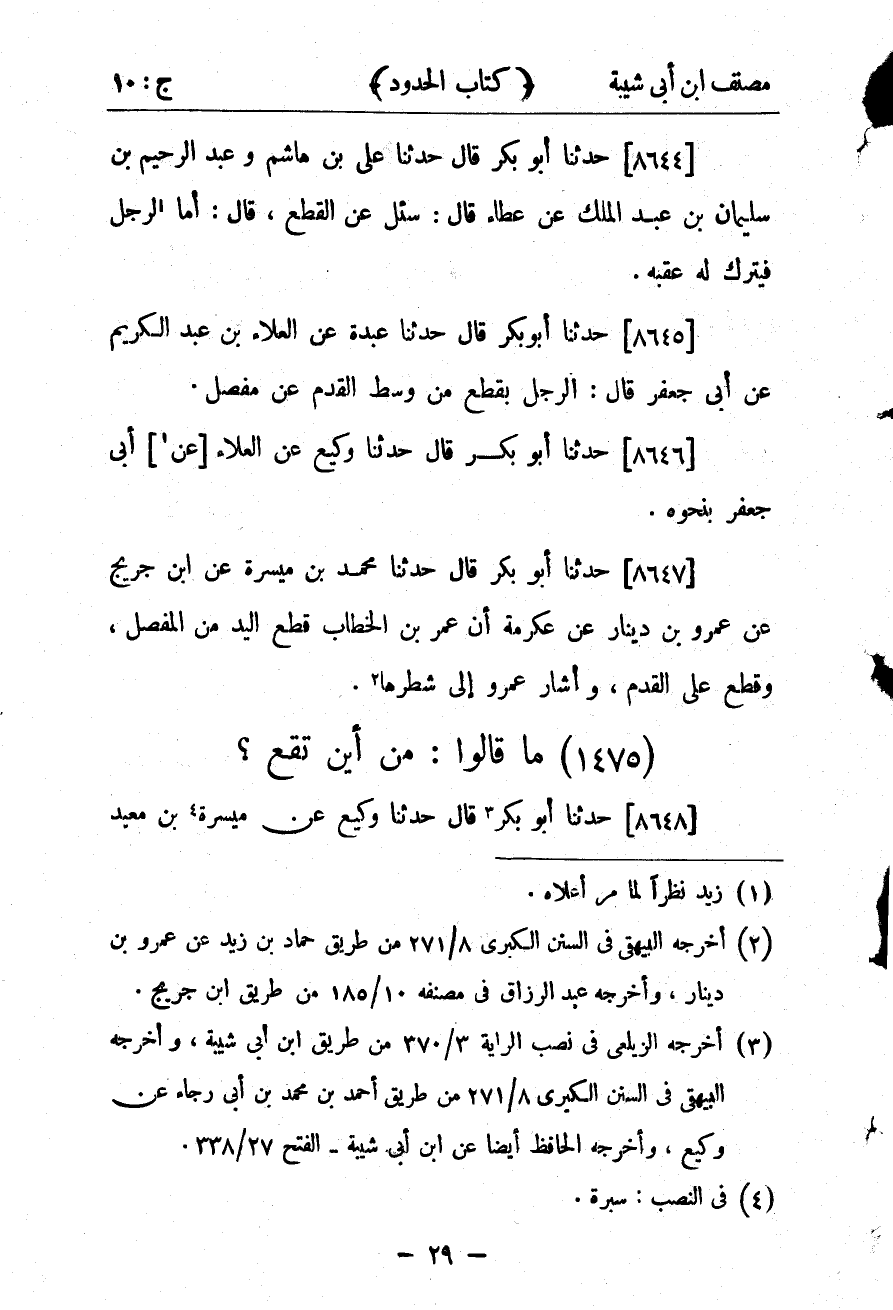 مصنف ابن أبى شيبة ﴿ كتاب الحدود ﴾ ج : ١٠
[٨٦٤٤] حدثنا أبو بكر قال حدثنا على بن هاشم و عبد الرحيم بن
سليمان بن عبد الملك عن عطاء قال : سئل عن القطع ، قال : أما الرجل
فيترك له عقبه .
[٨٦٤٥] حدثنا أبوبكر قال حدثنا عبدة عن العلاء بن عبد الكريم
عن أبى جعفر قال : الرجل بقطع من وسط القدم عن مفصل .
[٨٦٤٦] حدثنا أبو بكر قال حدثنا وكيع عن العلاء [عن١] أبى
جعفر بنحوه .
[٨٦٤٧] حدثنا أبو بكر قال حدثنا محمد بن ميسرة عن ابن جريج
عن عمرو بن دينار عن عكرمة أن عمر بن الخطاب قطع اليد من المفصل ،
وقطع على القدم ، و أشار عمرو إلى شطرها٢ .
(١٤٧٥) ما قالوا : من أين تقع ؟
[٨٦٤٨] حدثنا أبو بكر٣ قال حدثنا وكيع عن ميسرة٤ بن معبد
(١) زيد نظراً لما مر أعلاه .
(٢) أخرجه البيهقى فى السنن الكبرى ٢٧١/٨ من طريق حماد بن زيد عن عمرو بن
دينار ، و أخرجه عبد الرزاق فى مصنفه ١٨٥/١٠ من طريق ابن جريج .
(٣) أخرجه الزيلعى فى نصب الراية ٣٧٠/٣ من طريق ابن أبى شيبة ، و أخرجه
البيهقى فى السنن الكبرى ٢٧١/٨ من طريق أحمد بن محمد بن أبى رجاء عن
وكيع ، و أخرجه الحافظ أيضا عن ابن أبى شيبة - الفتح ٣٣٨/٢٧ .
(٤) فى النصب : سبرة .
- ٢٩ -